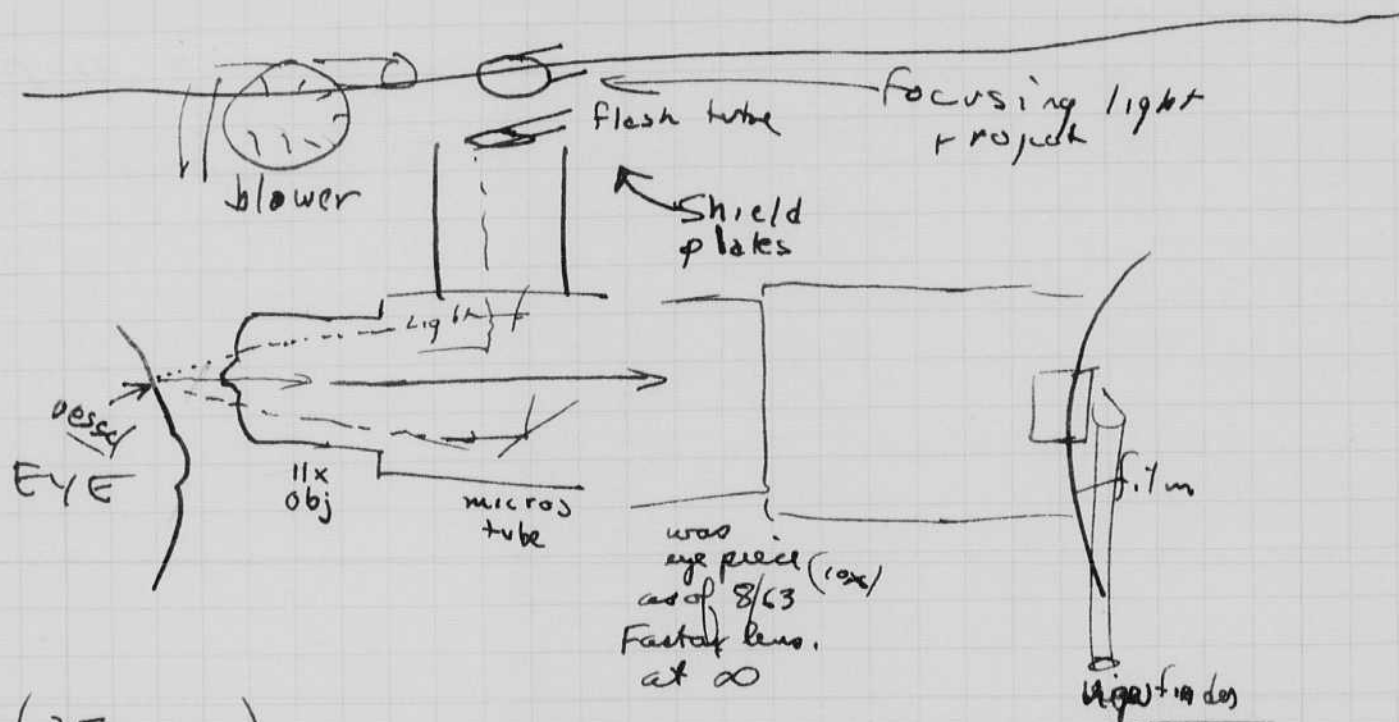 focusing light
flash tube
blower
Shield
plates
Light
vessel
EYE
11x
obj
micros
tube
was
eye piece (10x)
as of 8/63
Fastax lens.
at ∞
film
viewfinder